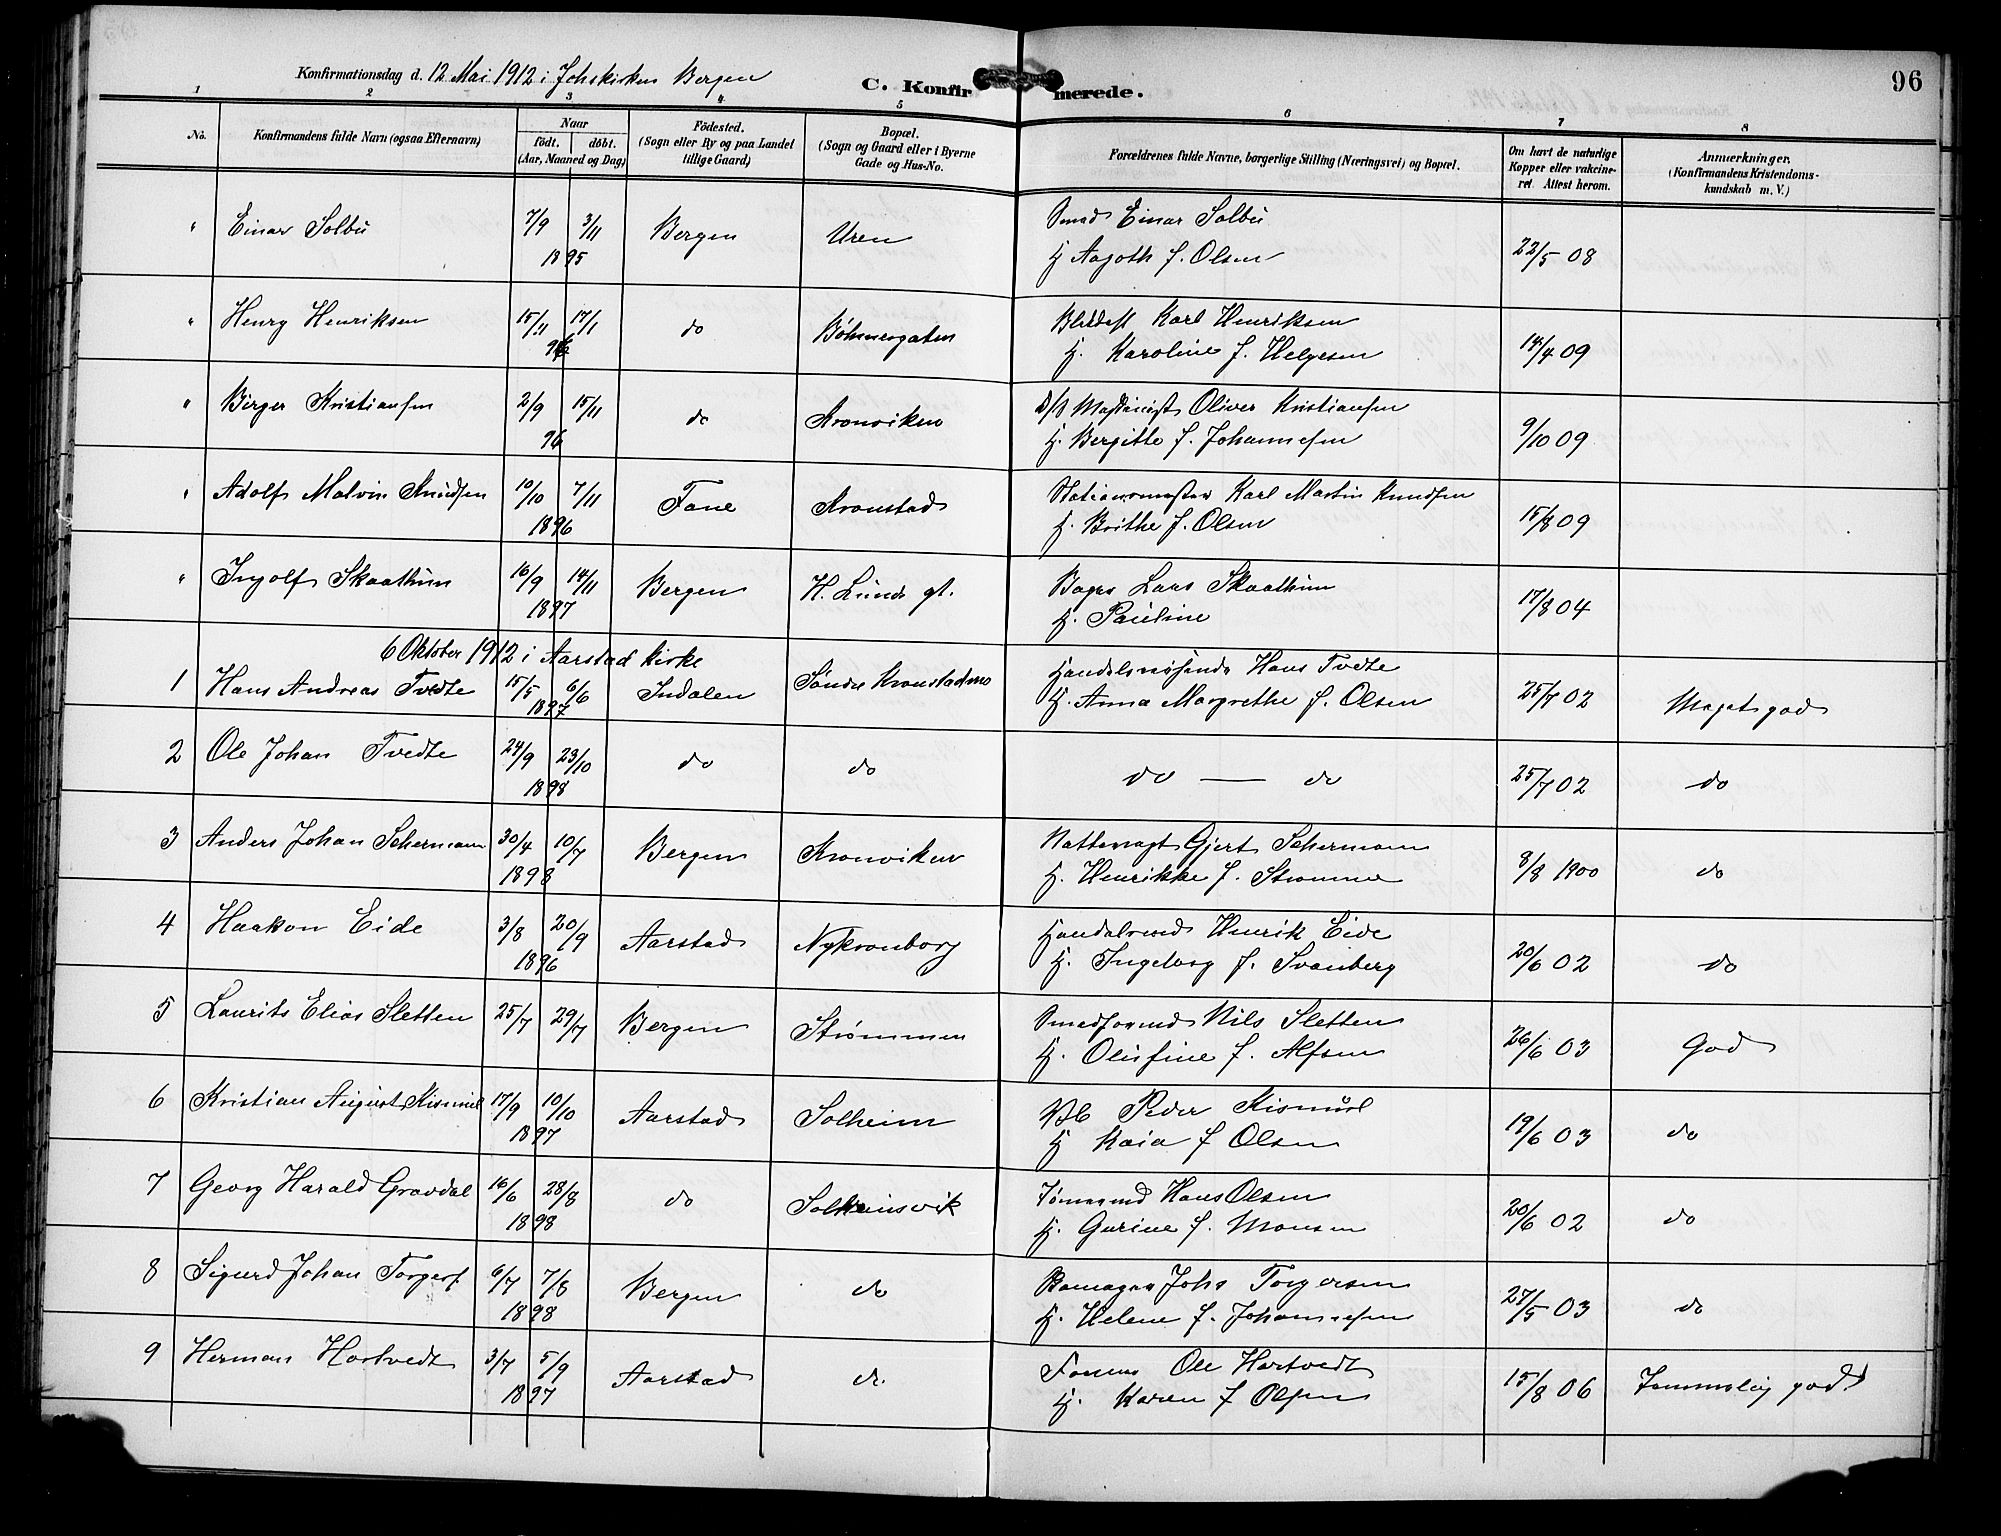 96
Konfirmationsdag d. 12 Mai 1912 i Johskirken Bergen
C. Konfirmerede.
1 2 3 4 5 6 7 8
No.
Konfirmandens fulde Navn (ogsaa Efternavn)
Naar
født. døbt.
(Aar, Maaned og Dag)
Födested.
(Sogn eller By og paa Landet
tillige Gaard)
Bopæl.
(Sogn og Gaard eller i Byerne
Gade og Hus-No.
Forældrenes fulde Navne, borgerlige Stilling (Næringsvei) og Bopæl.
Om havt de naturlige
Kopper eller vakcine-
ret. Attest herom.
Anmærkninger.
(Konfirmandens Kristendoms-
kundskab m. V.)
" Einar Solbu 7/9 3/11 Bergen Uren Smed Einar Solbu
1895 H Aagoth f. Olsen 22/5 08
" Henry Henriksen 15/11 17/1 do Böhmergaten Karl Henriksen
96 H. Karoline f. Helgesen 14/4 09
" Birger Kristiansen 2/9 15/11 do Kronviken D/S Maskinist Oliver Kristiansen
96 H. Bergitte f. Johannesen 9/10 09
" Adolf Malvin Knudsen 10/10 7/11 Fane Kronstad Stationsmester Karl Martin Knudsen
1896 H. Brithe f. Olsen 15/8 09
" Ingolf Skaathun 16/9 14/11 Bergen H. Lunds gt. Bager Lars Skaathun
1897 H. Pauline 17/8 04
6 Oktober 1912 i Aarstad Kirke
1 Hans Andreas Tvedte 15/5 6/6 Indalen Søndre Kronstadmo Handelsreisende Hans Tvedte
1897 H. Anna Margrethe f. Olsen 25/7 02 Meget god
2 Ole Johan Tvedte 24/9 23/10 do do do — do 25/7 02 do
1898
3 Anders Johan Schermann 30/4 10/7 Bergen Kronviken Nattevagt Gjert Schermann
1898 H. Henrikke f. Strømme 8/8 1900 do
4 Haakon Eide 3/8 20/9 Aarstad Nykronborg Handelsmd Henrik Eide
1896 H. Ingeborg f. Svanberg 20/6 02 do
5 Laurits Elias Sletten 25/7 29/7 Bergen Strømmen Smedformd Nils Sletten
H. Olufine f. Alfsen 26/6 03 God
6 Kristian August Kismul 17/9 10/10 Aarstad Solheim Peder Kismul
1897 H Kaia f Olsen 19/6 03 do
7 Georg Harald Gravdal 16/6 28/8 do Solheimsvik Tømmermd Hans Olsen
1898 H. Gurine f. Monsen 20/6 02 do
8 Sigurd Johan Torgers. 6/7 7/8 Bergen do Johs Torgersen
1898 H. Helene f. Johannesen 27/5 03 do
9 Herman Hartvedt 3/7 5/9 Aarstad do Ole Hartvedt
1897 H. Karen f Olsen 15/8 06 Temmelig god